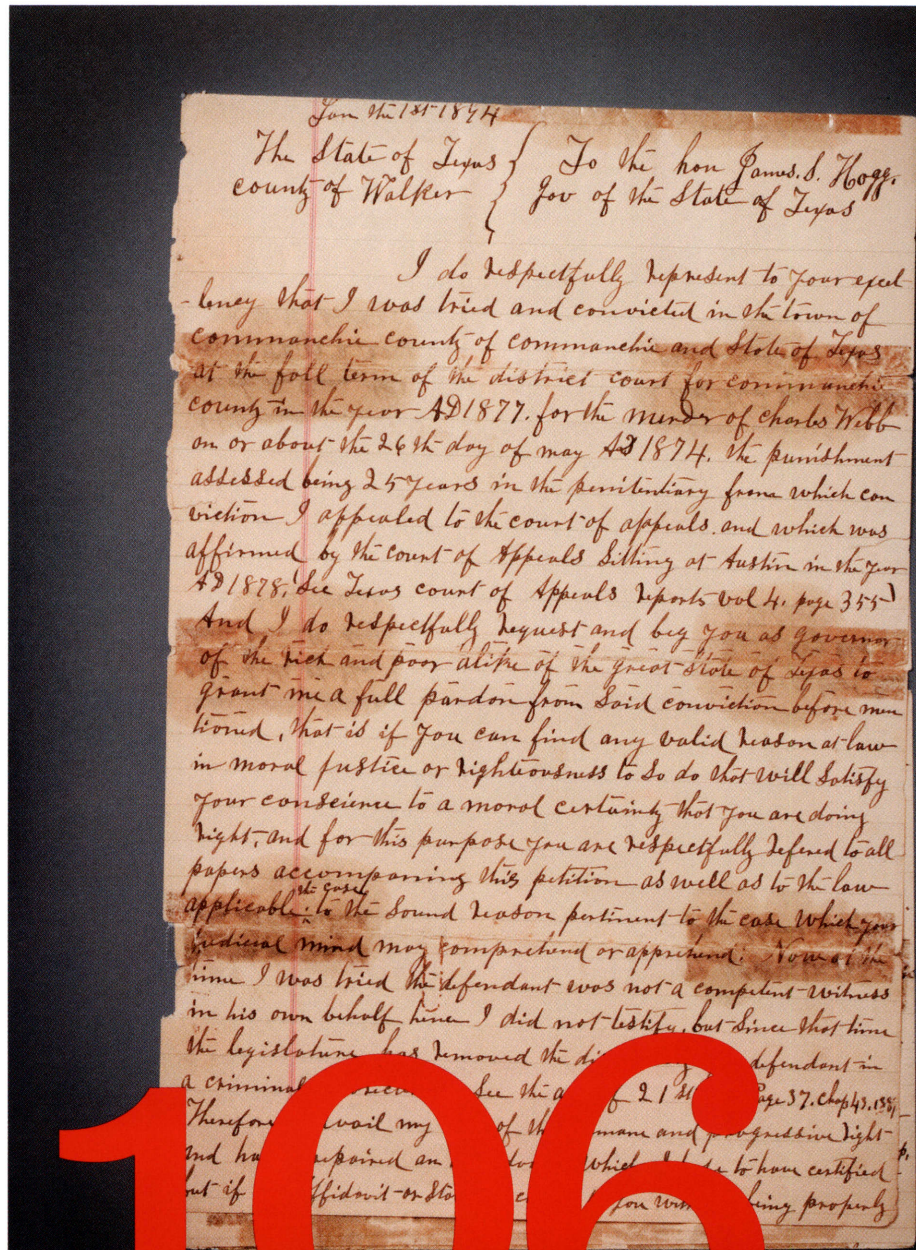 Jan the 1st 1894
The State of Texas
county of Walker
To the hon James. S. Hogg.
Gov of the State of Texas
I do respectfully represent to your excel
-lency that I was tried and convicted in the town of
commanchie county of commanchie and State of Texas
at the fall term of the district court for commanchie
county in the year AD 1877. for the murder of charles Webb
on or about the 26th day of may AD 1874. the punishment
assessed being 25 years in the penitentiary from which con
viction I appealed to the court of appeals. and which was
affirmed by the court of Appeals Sitting at Austin in the year
AD 1878, (See Texas court of Appeals reports vol 4. page 355)
And I do respectfully request and beg you as governor
of the rich and poor alike of the great State of Texas to
grant me a full pardon from Said conviction before men
tioned, that is if you can find any valid reason at law
in moral justice or righteousness to So do that will Satisfy
your conscience to a moral certainty that you are doing
right, and for this purpose you are respectfully refered to all
papers accompaning this petition as well as to the law
applicable to the case to the Sound reason pertinent to the case which your
judicial mind may comprehend or apprehend. Now at the
time I was tried the defendant was not a competent witness
in his own behalf hence I did not testify, but Since that time
the legislature has removed the defendant in
a criminal See the of 21st Page 37. Chap 43.
Therefore my of and progressive right
and which to have certified
but if affidavit or you being properly
106